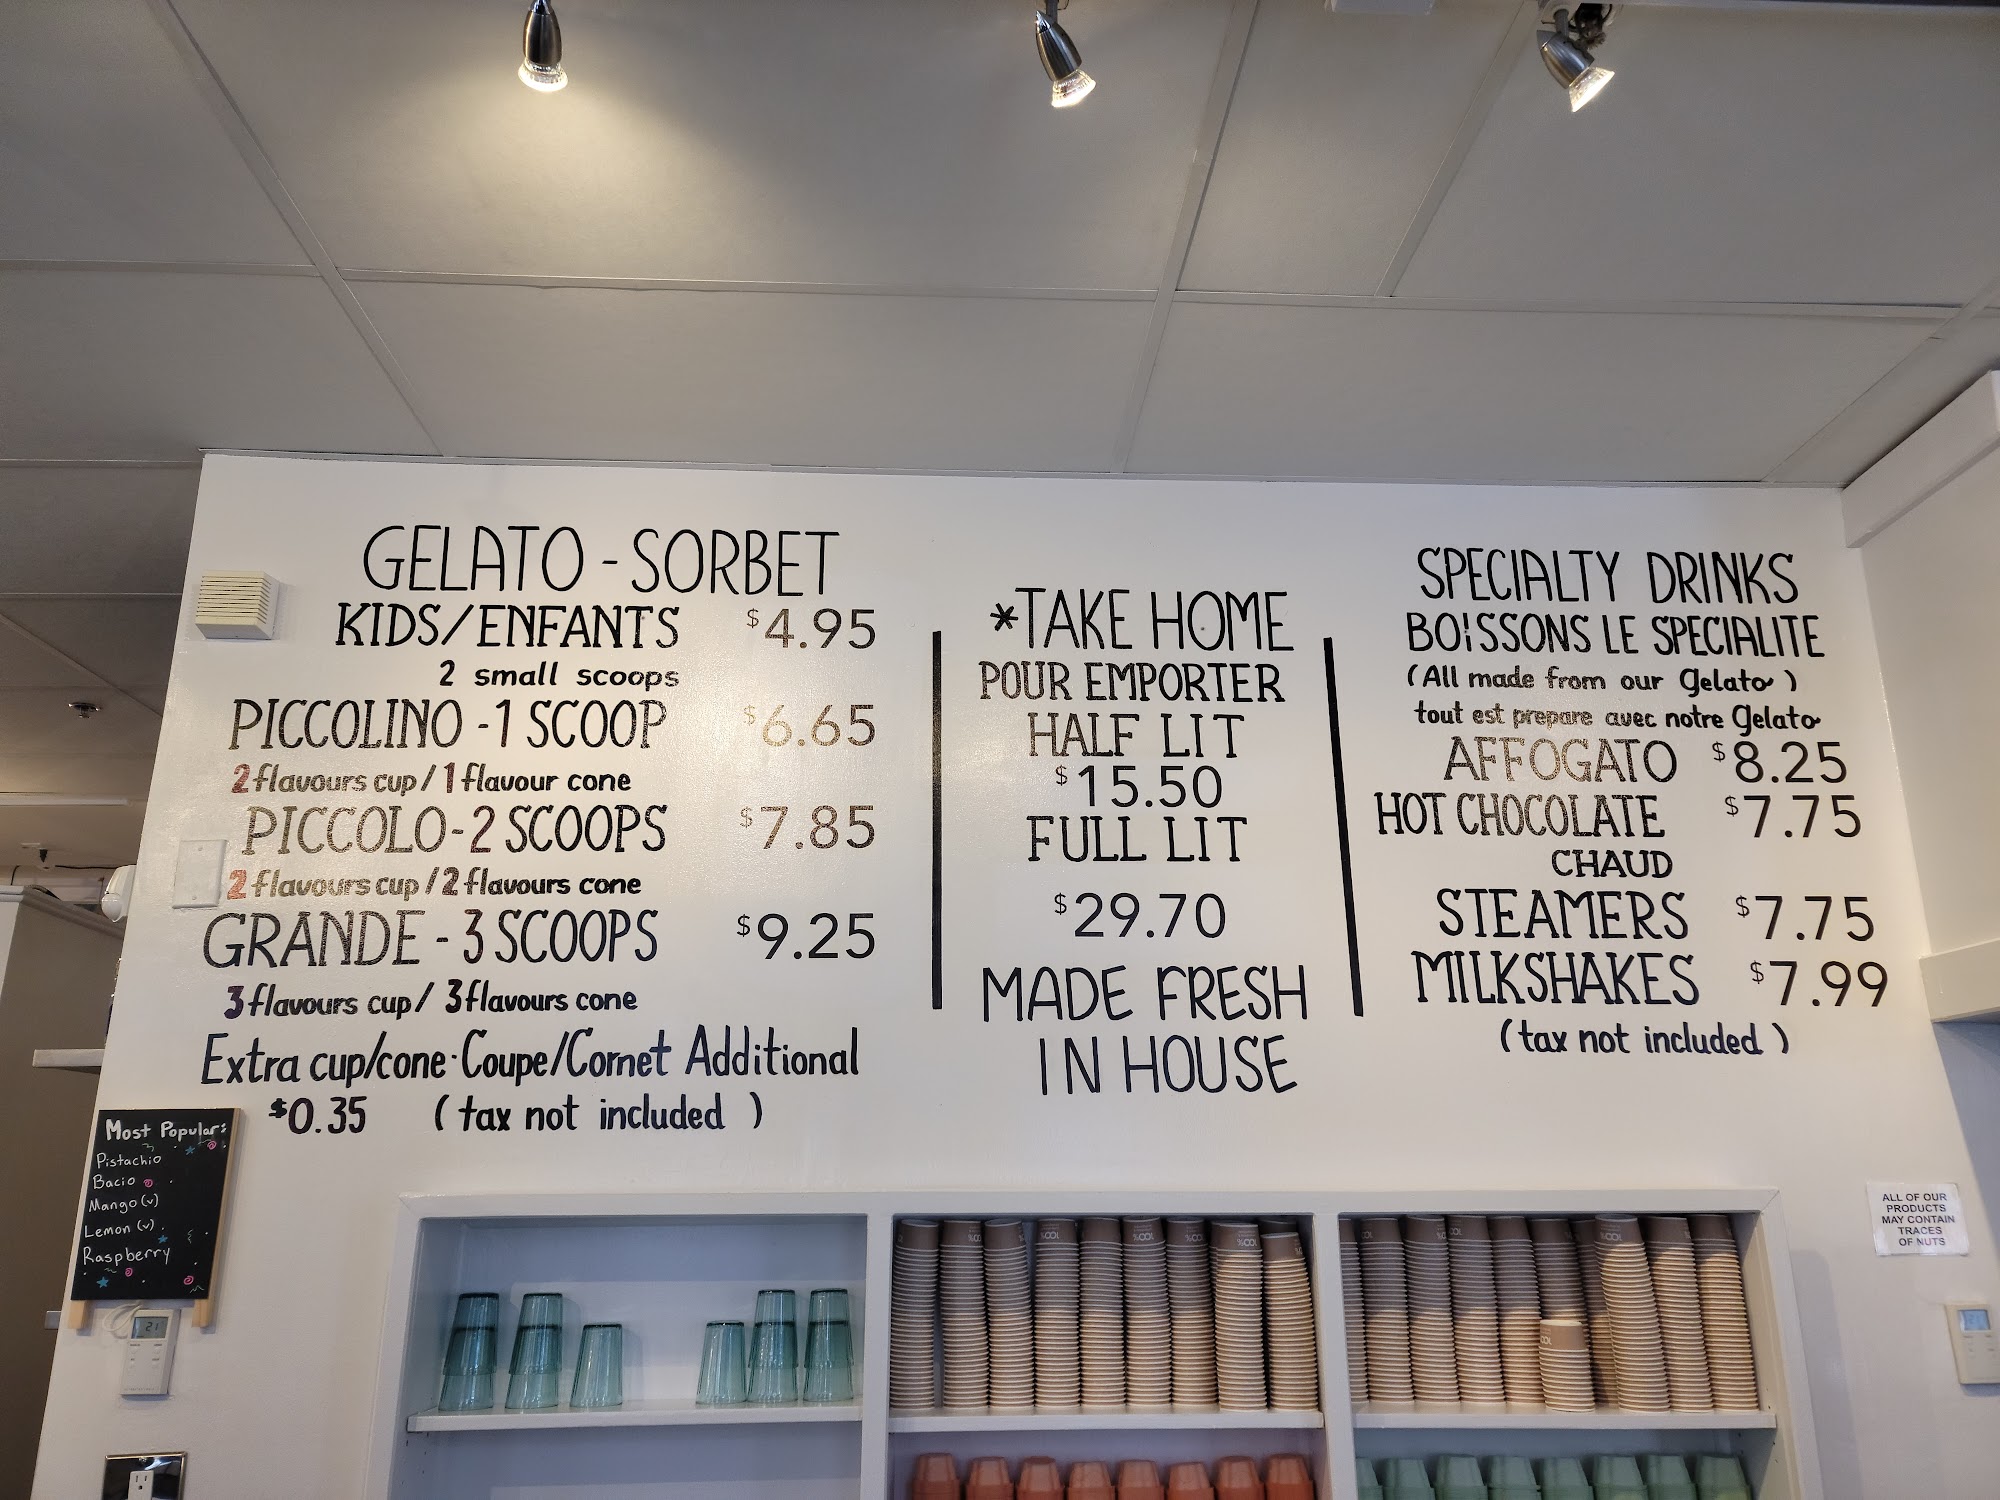 GELATO - SORBET
KIDS/ENFANTS $4.95
2 small scoops
PICCOLINO - 1 SCOOP $6.65
2 flavours cup / 1 flavour cone
PICCOLO - 2 SCOOPS $7.85
2 flavours cup / 2 flavours cone
GRANDE - 3 SCOOPS $9.25
3 flavours cup / 3 flavours cone
Extra cup/cone · Coupe/Cornet Additional
$0.35 ( tax not included )
*TAKE HOME
POUR EMPORTER
HALF LIT
$15.50
FULL LIT
$29.70
MADE FRESH
IN HOUSE
SPECIALTY DRINKS
BOISSONS LE SPECIALITE
(All made from our Gelato)
tout est prepare avec notre Gelato
AFFOGATO $8.25
HOT CHOCOLATE $7.75
CHAUD
STEAMERS $7.75
MILKSHAKES $7.99
( tax not included )
Most Popular:
Pistachio
Bacio
Mango (v)
Lemon (v)
Raspberry
ALL OF OUR
PRODUCTS
MAY CONTAIN
TRACES
OF NUTS
21